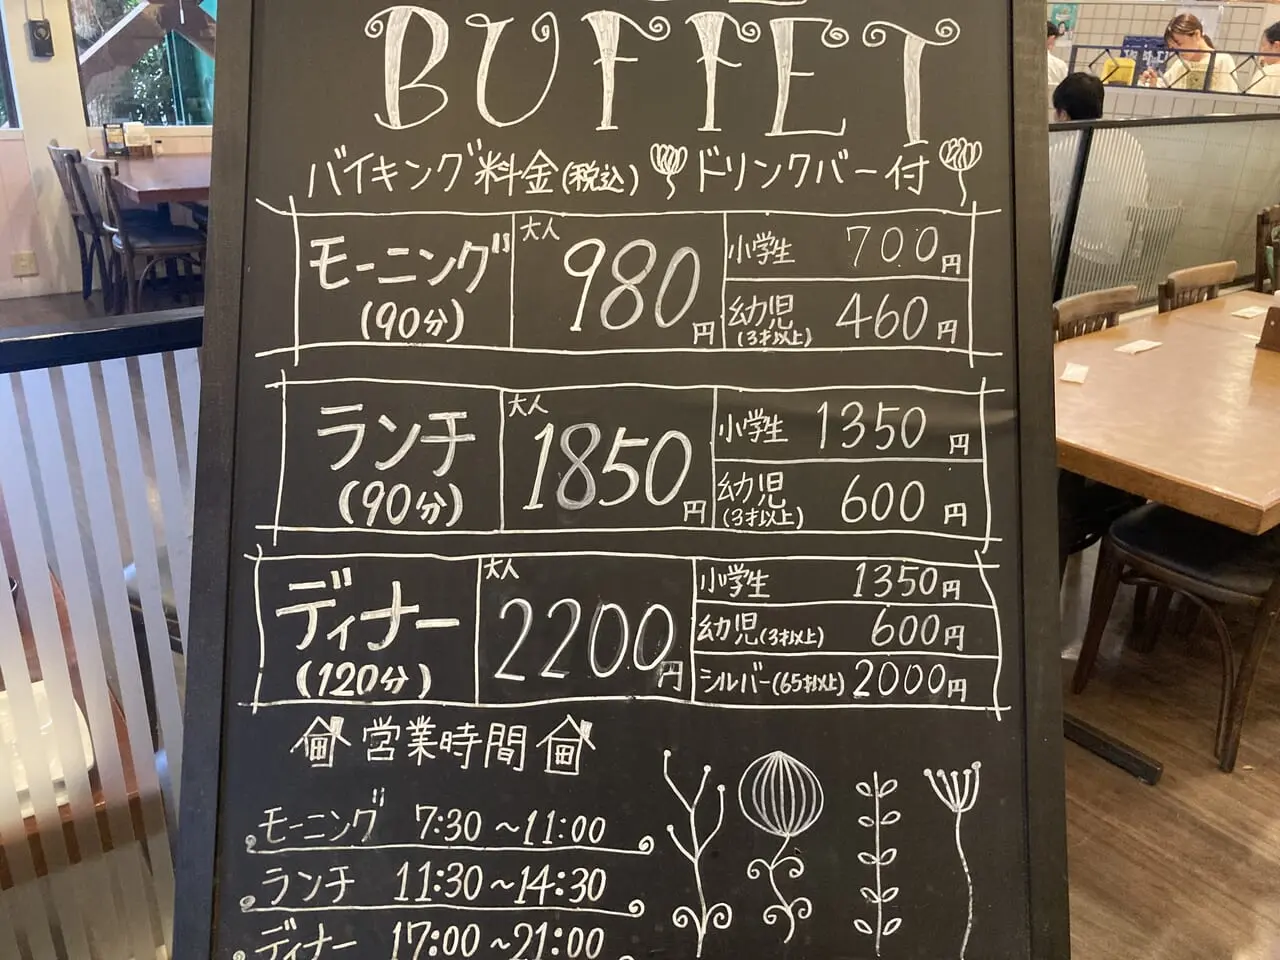 BUFFET
バイキング料金(税込) ドリンクバー付
モーニング
(90分)
大人
980円
小学生 700円
幼児 460円
(3才以上)
ランチ
(90分)
大人
1850円
小学生 1350円
幼児 600円
(3才以上)
ディナー
(120分)
大人
2200円
小学生 1350円
幼児(3才以上) 600円
シルバー(65才以上) 2000円
営業時間
モーニング 7:30～11:00
ランチ 11:30～14:30
ディナー 17:00～21:00